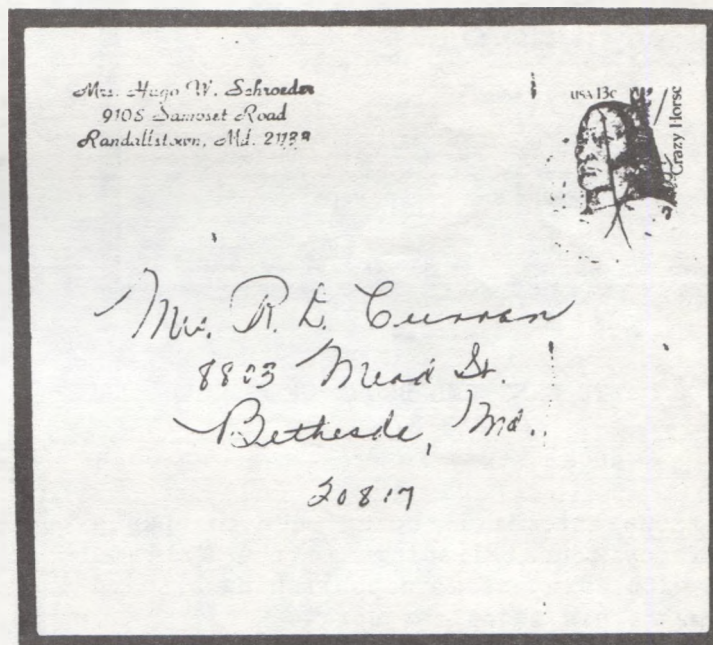 Mrs. Hugo W. Schroeder
9105 Samoset Road
Randallstown, Md. 21133
USA 13c
Crazy Horse
Mrs. R. L. Curran
8803 Mead St.
Bethesda, Md.
20817